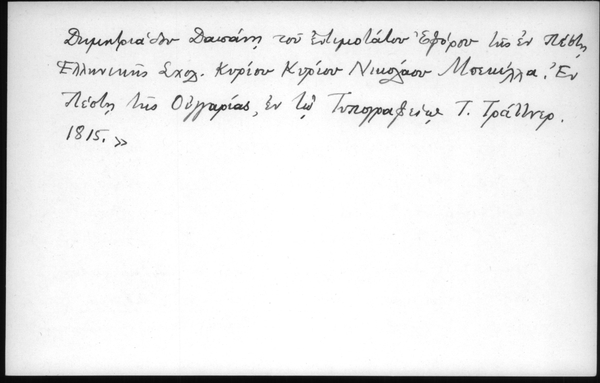 Δημητριάδου Δαπάνῃ τοῦ Ἐντιμοτάτου Ἐφόρου τῆς ἐν Πέστῃ
Ἑλληνικῆς Σχολ. Κυρίου Κυρίου Νικολάου Μπεκέλλα. Ἐν
Πέστῃ τῆς Οὐγγαρίας, ἐν τῷ Τυπογραφείῳ Τ. Τράττνερ.
1815.»